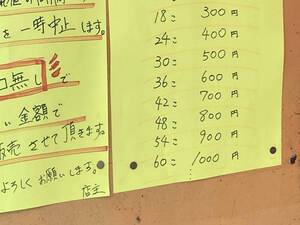 を一時中止します。
無しで
い金額で
販売させて頂きます。
よろしくお願いします。
店主
18: 300円
24: 400円
30: 500円
36: 600円
42: 700円
48: 800円
54: 900円
60: 1000円